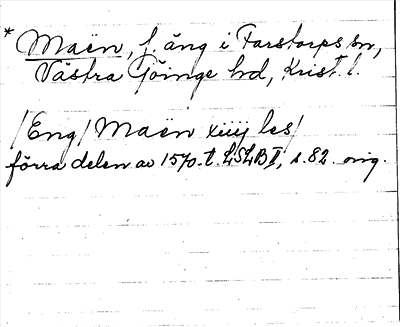 * Maën, f. äng i Farstorps sn,
Västra Göinge hd, Krist. l.
/Eng/ Maën xiiij les/
förra delen av 1570-t. LSLB II, s. 82 orig.